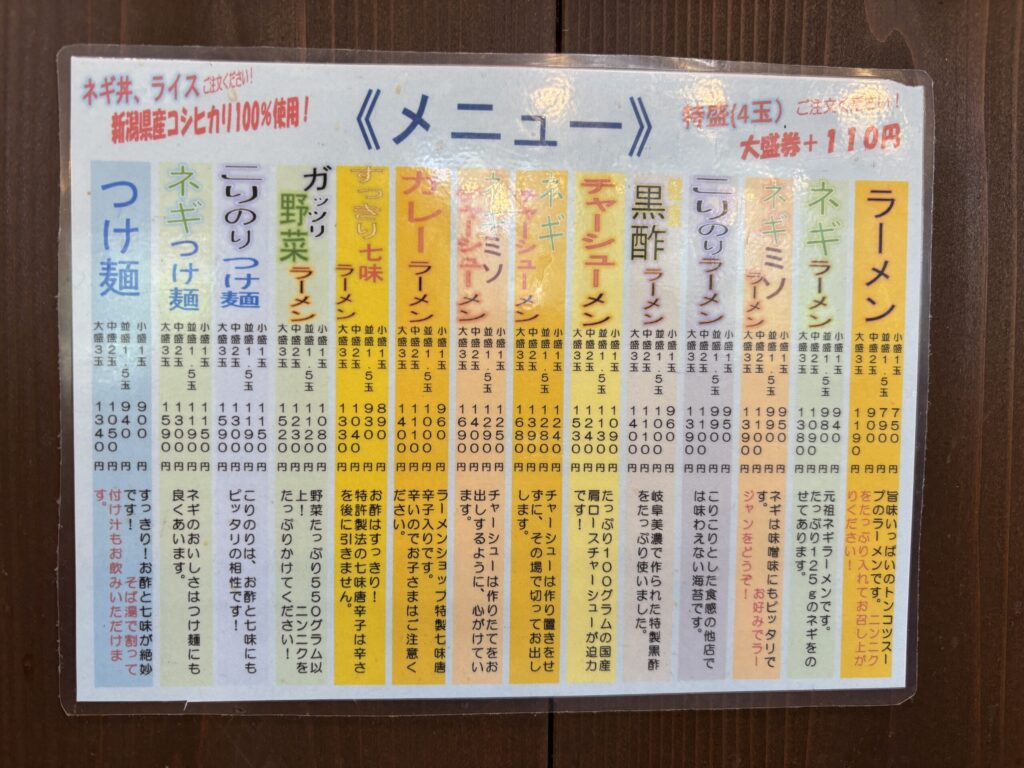 ネギ丼、ライス ご注文ください！
新潟県産コシヒカリ100％使用！
《メニュー》
特盛(4玉) ご注文ください！
大盛券＋110円
ラーメン
小盛1玉 750円
並盛1.5玉 790円
中盛2玉 900円
大盛3玉 1190円
旨味いっぱいのトンコツスー
プのラーメンです。ニンニク
をたっぷり入れてお召し上が
りください！
ネギラーメン
小盛1玉 940円
並盛1.5玉 980円
中盛2玉 1090円
大盛3玉 1380円
元祖ネギラーメンです。
たっぷり125gのネギをの
せてあります。
ネギミソラーメン
小盛1玉 950円
並盛1.5玉 990円
中盛2玉 1100円
大盛3玉 1390円
ネギは味噌味にもピッタリで
す。お好みでラー
ジャンをどうぞ！
こりのりラーメン
小盛1玉 950円
並盛1.5玉 990円
中盛2玉 1100円
大盛3玉 1390円
こりこりとした食感の他店で
は味わえない海苔です。
黒酢ラーメン
小盛1玉 960円
並盛1.5玉 1000円
中盛2玉 1110円
大盛3玉 1400円
岐阜美濃で作られた特製黒酢
をたっぷり使いました。
チャーシューメン
小盛1玉 1090円
並盛1.5玉 1130円
中盛2玉 1240円
大盛3玉 1530円
たっぷり100グラムの国産
肩ロースチャーシューが迫力
です！
ネギチャーシューメン
小盛1玉 1240円
並盛1.5玉 1280円
中盛2玉 1390円
大盛3玉 1680円
チャーシューは作り置きをせ
ずに、その場で切ってお出し
します。
ネギミソチャーシューメン
小盛1玉 1250円
並盛1.5玉 1290円
中盛2玉 1400円
大盛3玉 1690円
チャーシューは作りたてをお
出しするように、心がけてい
ます。
カレーラーメン
小盛1玉 960円
並盛1.5玉 1000円
中盛2玉 1110円
大盛3玉 1400円
ラーメンショップ特製七味唐
辛子入りです。
辛いのでお子さまはご注意く
ださい。
すっきり七味ラーメン
小盛1玉 890円
並盛1.5玉 930円
中盛2玉 1040円
大盛3玉 1330円
お酢はすっきり！
特許製法の七味唐辛子は辛さ
を後に引きません。
ガッツリ野菜ラーメン
小盛1玉 1080円
並盛1.5玉 1120円
中盛2玉 1230円
大盛3玉 1520円
野菜たっぷり550グラム以
上！ニンニクを
たっぷりかけてください！
こりのりつけ麺
小盛1玉 1150円
並盛1.5玉 1190円
中盛2玉 1300円
大盛3玉 1590円
こりのりは、お酢と七味にも
ピッタリの相性です！
ネギつけ麺
小盛1玉 1150円
並盛1.5玉 1190円
中盛2玉 1300円
大盛3玉 1590円
ネギのおいしさはつけ麺にも
良くあいます。
つけ麺
小盛1玉 900円
並盛1.5玉 940円
中盛2玉 1050円
大盛3玉 1340円
すっきり！お酢と七味が絶妙
です！そば湯で割って
付け汁もお飲みいただけま
す。